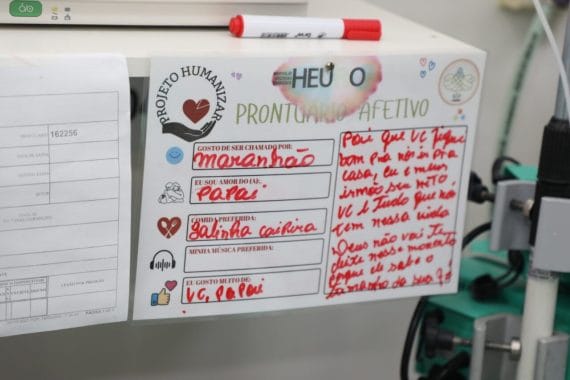 PROJETO HUMANIZAR
HEU O
PRONTUÁRIO AFETIVO
GOSTO DE SER CHAMADO POR:
maranhão
EU SOU AMOR DO (A):
Papai
COMIDA PREFERIDA:
galinha caipira
MINHA MÚSICA PREFERIDA:
EU GOSTO MUITO DE:
VC, PaPai
Pai que VC fique
bom pra nós ir pra
casa, eu e meu
irmão seu mito
VC é Tudo que nós
tem nessa vida
Deus não vai Te
deixe nesse momento
porque ele sabe o
tamanho da sua fé
162256